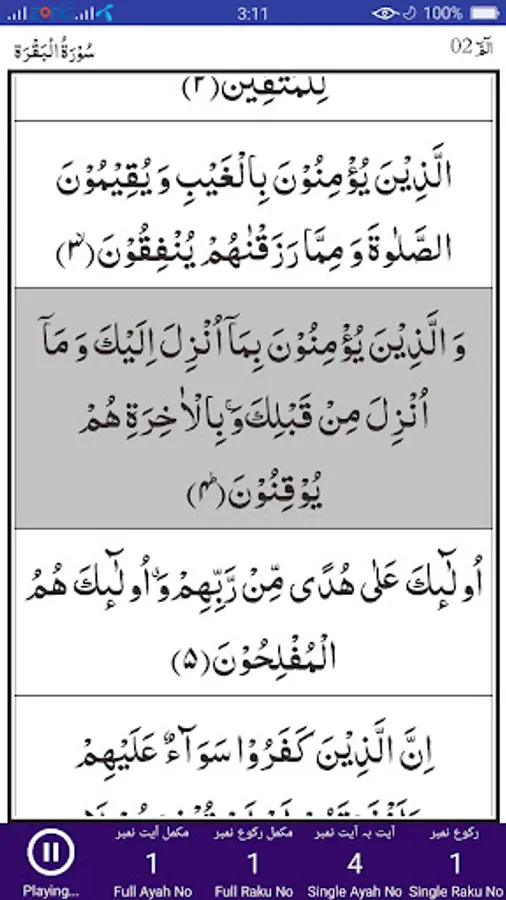 3:11 100%
سُوْرَةُ الْبَقَرَة الٓمّٓ 02
لِّلْمُتَّقِيْنَ(۲)
الَّذِيْنَ يُؤْمِنُوْنَ بِالْغَيْبِ وَ يُقِيْمُوْنَ
الصَّلٰوةَ وَ مِمَّا رَزَقْنٰهُمْ يُنْفِقُوْنَ(۳)
وَ الَّذِيْنَ يُؤْمِنُوْنَ بِمَاۤ اُنْزِلَ اِلَيْكَ وَ مَاۤ
اُنْزِلَ مِنْ قَبْلِكَۚ وَ بِالْاٰخِرَةِ هُمْ
يُوْقِنُوْنَؕ(۴)
اُولٰٓىٕكَ عَلٰى هُدًى مِّنْ رَّبِّهِمْۗ وَ اُولٰٓىٕكَ هُمُ
الْمُفْلِحُوْنَ(۵)
اِنَّ الَّذِيْنَ كَفَرُوْا سَوَآءٌ عَلَيْهِمْ
مکمل آیت نمبر مکمل رکوع نمبر آیت بہ آیت نمبر رکوع نمبر
1 1 4 1
Playing... Full Ayah No Full Raku No Single Ayah No Single Raku No